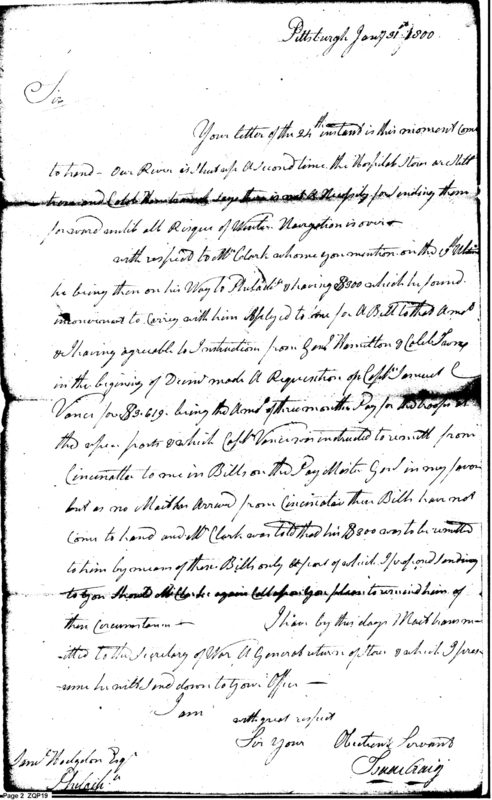 Pittsburgh Jany 31st 1800
Sir
Your letter of the 24th instand is this moment Come
to hand – Our River is Shut up A Second time, the Hospital Stores are Still
here and Caleb says there is not A Nessesity for sending them
forward untill all Risque of Winter Navigation is over
with respect to Mr Clark whome you mention on the
he being then on his Way to Philada & having $300 which he found
inconvenient to Carrey with him Applyed to me for A Bill to that Amot
& I having agreable to Instructions from Genl Hamilton & Caleb Swan
in the begining of Decemr made A Requesition on Capt Samuel C
Vance for $3.619. being the Amot of three months Pay for the troops at
the upper posts & which Capt Vance was instructed to remitt from
Cincinatti to me in Bills on the Pay Master Genl in my favor
but as no Mail has Arrived from Cincinatti these Bills have not
Come to hand and Mr Clark was told that his $300 was to be remitted
to him by means of these Bills only & part of which I proposed sending
to you Should Mr Clark again Call upon you please to remind him of
these Circumstances –
I have by this days Mail transm-
itted to the Secretary of War A General return of Stores & which I pres-
ume he will Send down to Your Office –
I am
with great respect
Sir Your Obedient Servant
Isaac Craig
Saml Hodgdon Esqr
Philada
Page 2 ZQP19